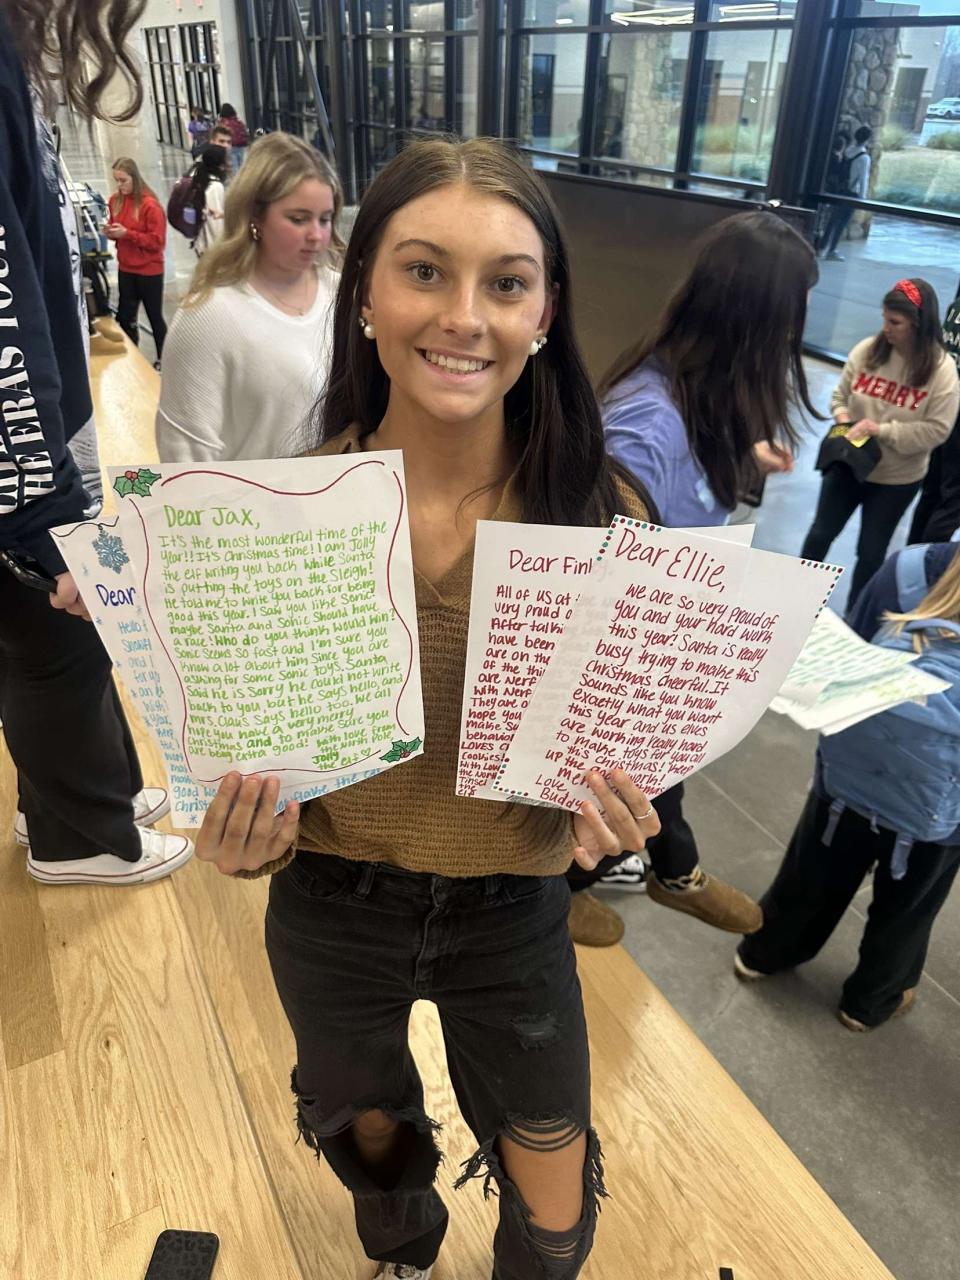 THE ERAS TOUR
MERRY
Dear Jax,
It's the most wonderful time of the
year!! It's Christmas time! I am Jolly
the elf writing you back while Santa
is putting the toys on the sleigh!
He told me to write you back for being
good this year. I saw you like Sonic!
maybe Santa and Sonic should have
a race! Who do you think would win?
Sonic seems so fast and I'm sure you
know a lot about him since you are
asking for some Sonic toys. Santa
said he is sorry he could not write
back to you, but he says hello, and
mrs. Claus says hello too. We all
hope you have a very merry
Christmas and to make sure you
are being extra good! With love from
the North Pole,
Jolly
the elf
Dear
Hello
and I
for yo
an e
with
year
good wo
Christ
flake the
Dear Finl
All of us at
very proud o
After talki
have been
are on the
of the thi
are Nerf
with Nerf
They are o
hope you
make su
behavio
LOVES c
cookies!
With Love
the Nort
Tinsel
the elf
Dear Ellie,
we are so very proud of
you and your hard work
this year! Santa is really
busy trying to make this
Christmas cheerful. It
sounds like you know
exactly what you want
this year and us elves
are working really hard
to make toys for you all
this Christmas! Keep
up the work!
mer
Love,
Buddy